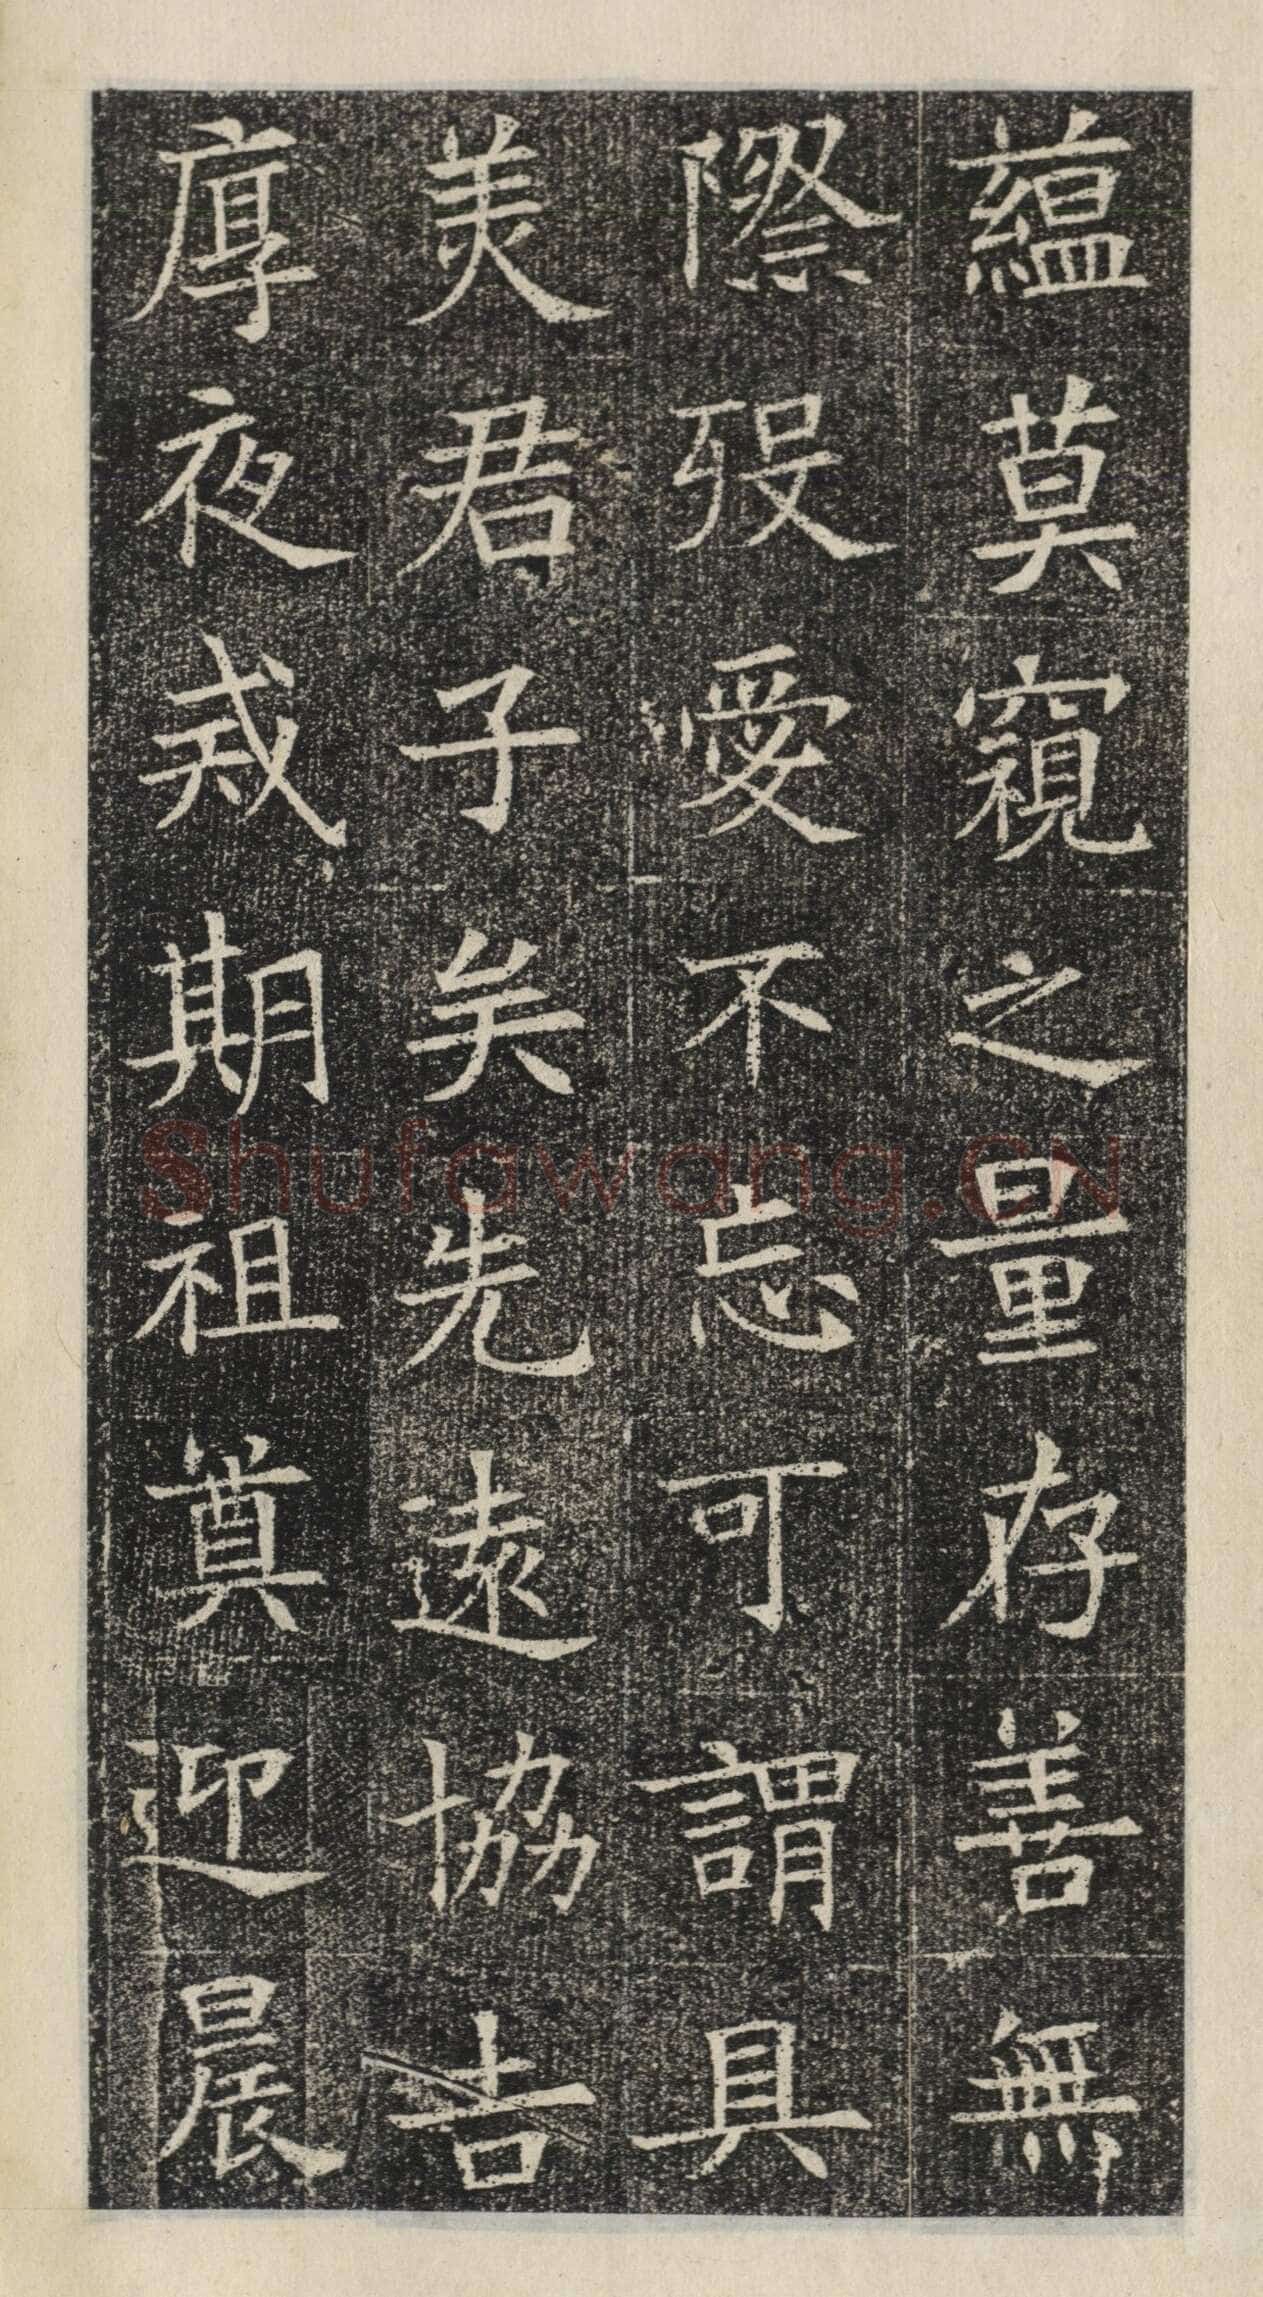 蘊莫窺之量存善無
際歿愛不忘可謂具
美君子矣先遠協吉
厚夜戒期祖奠迎晨
Shufawang.CN